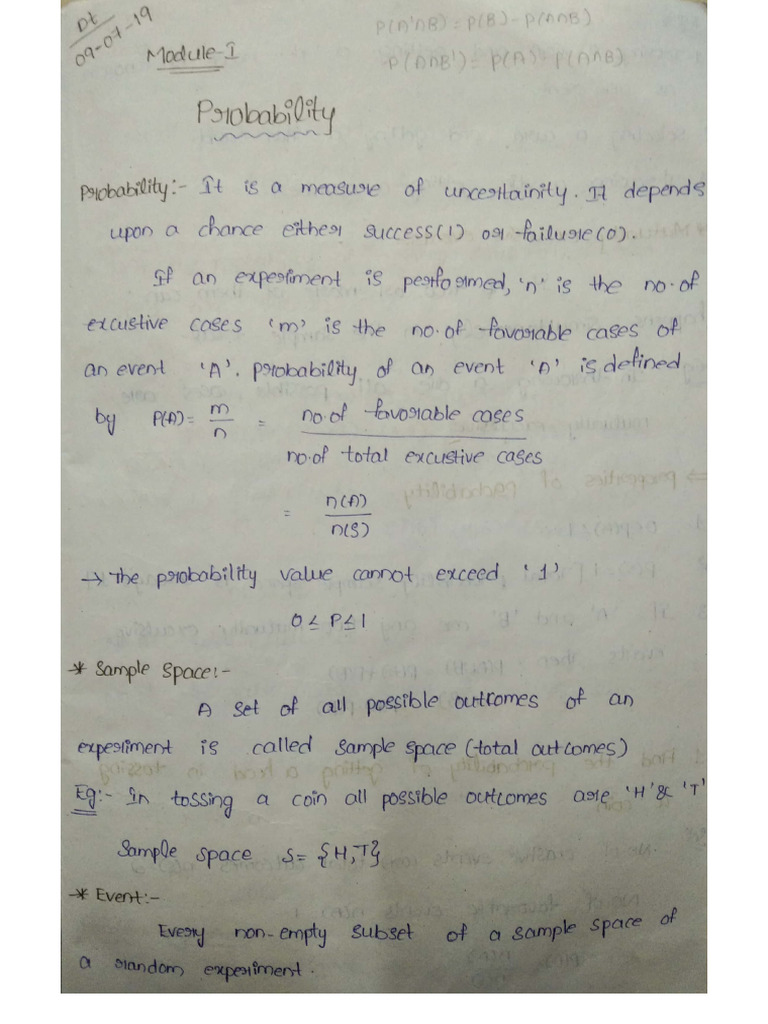 Dt
09-07-19
P(A'∩B) = P(B) - P(A∩B)
Module-I
P(A∩B') = P(A) - P(A∩B)
Probability
Probability:- It is a measure of uncertainity. It depends
upon a chance either success(1) or failure(0).
If an experiment is performed, 'n' is the no.of
excustive cases 'm' is the no.of favorable cases of
an event 'A'. probability of an event 'A' is defined
by P(A) = m/n = no.of favorable cases / no.of total excustive cases
= n(A)/n(S)
→ The probability value cannot exceed '1'
0 ≤ P ≤ 1
→* Sample Space:-
A set of all possible outcomes of an
experiment is called sample space (total outcomes)
Eg:- In tossing a coin all possible outcomes are 'H' & 'T'
Sample space S = {H,T}
→* Event:-
Every non-empty subset of a sample space of
a random experiment.